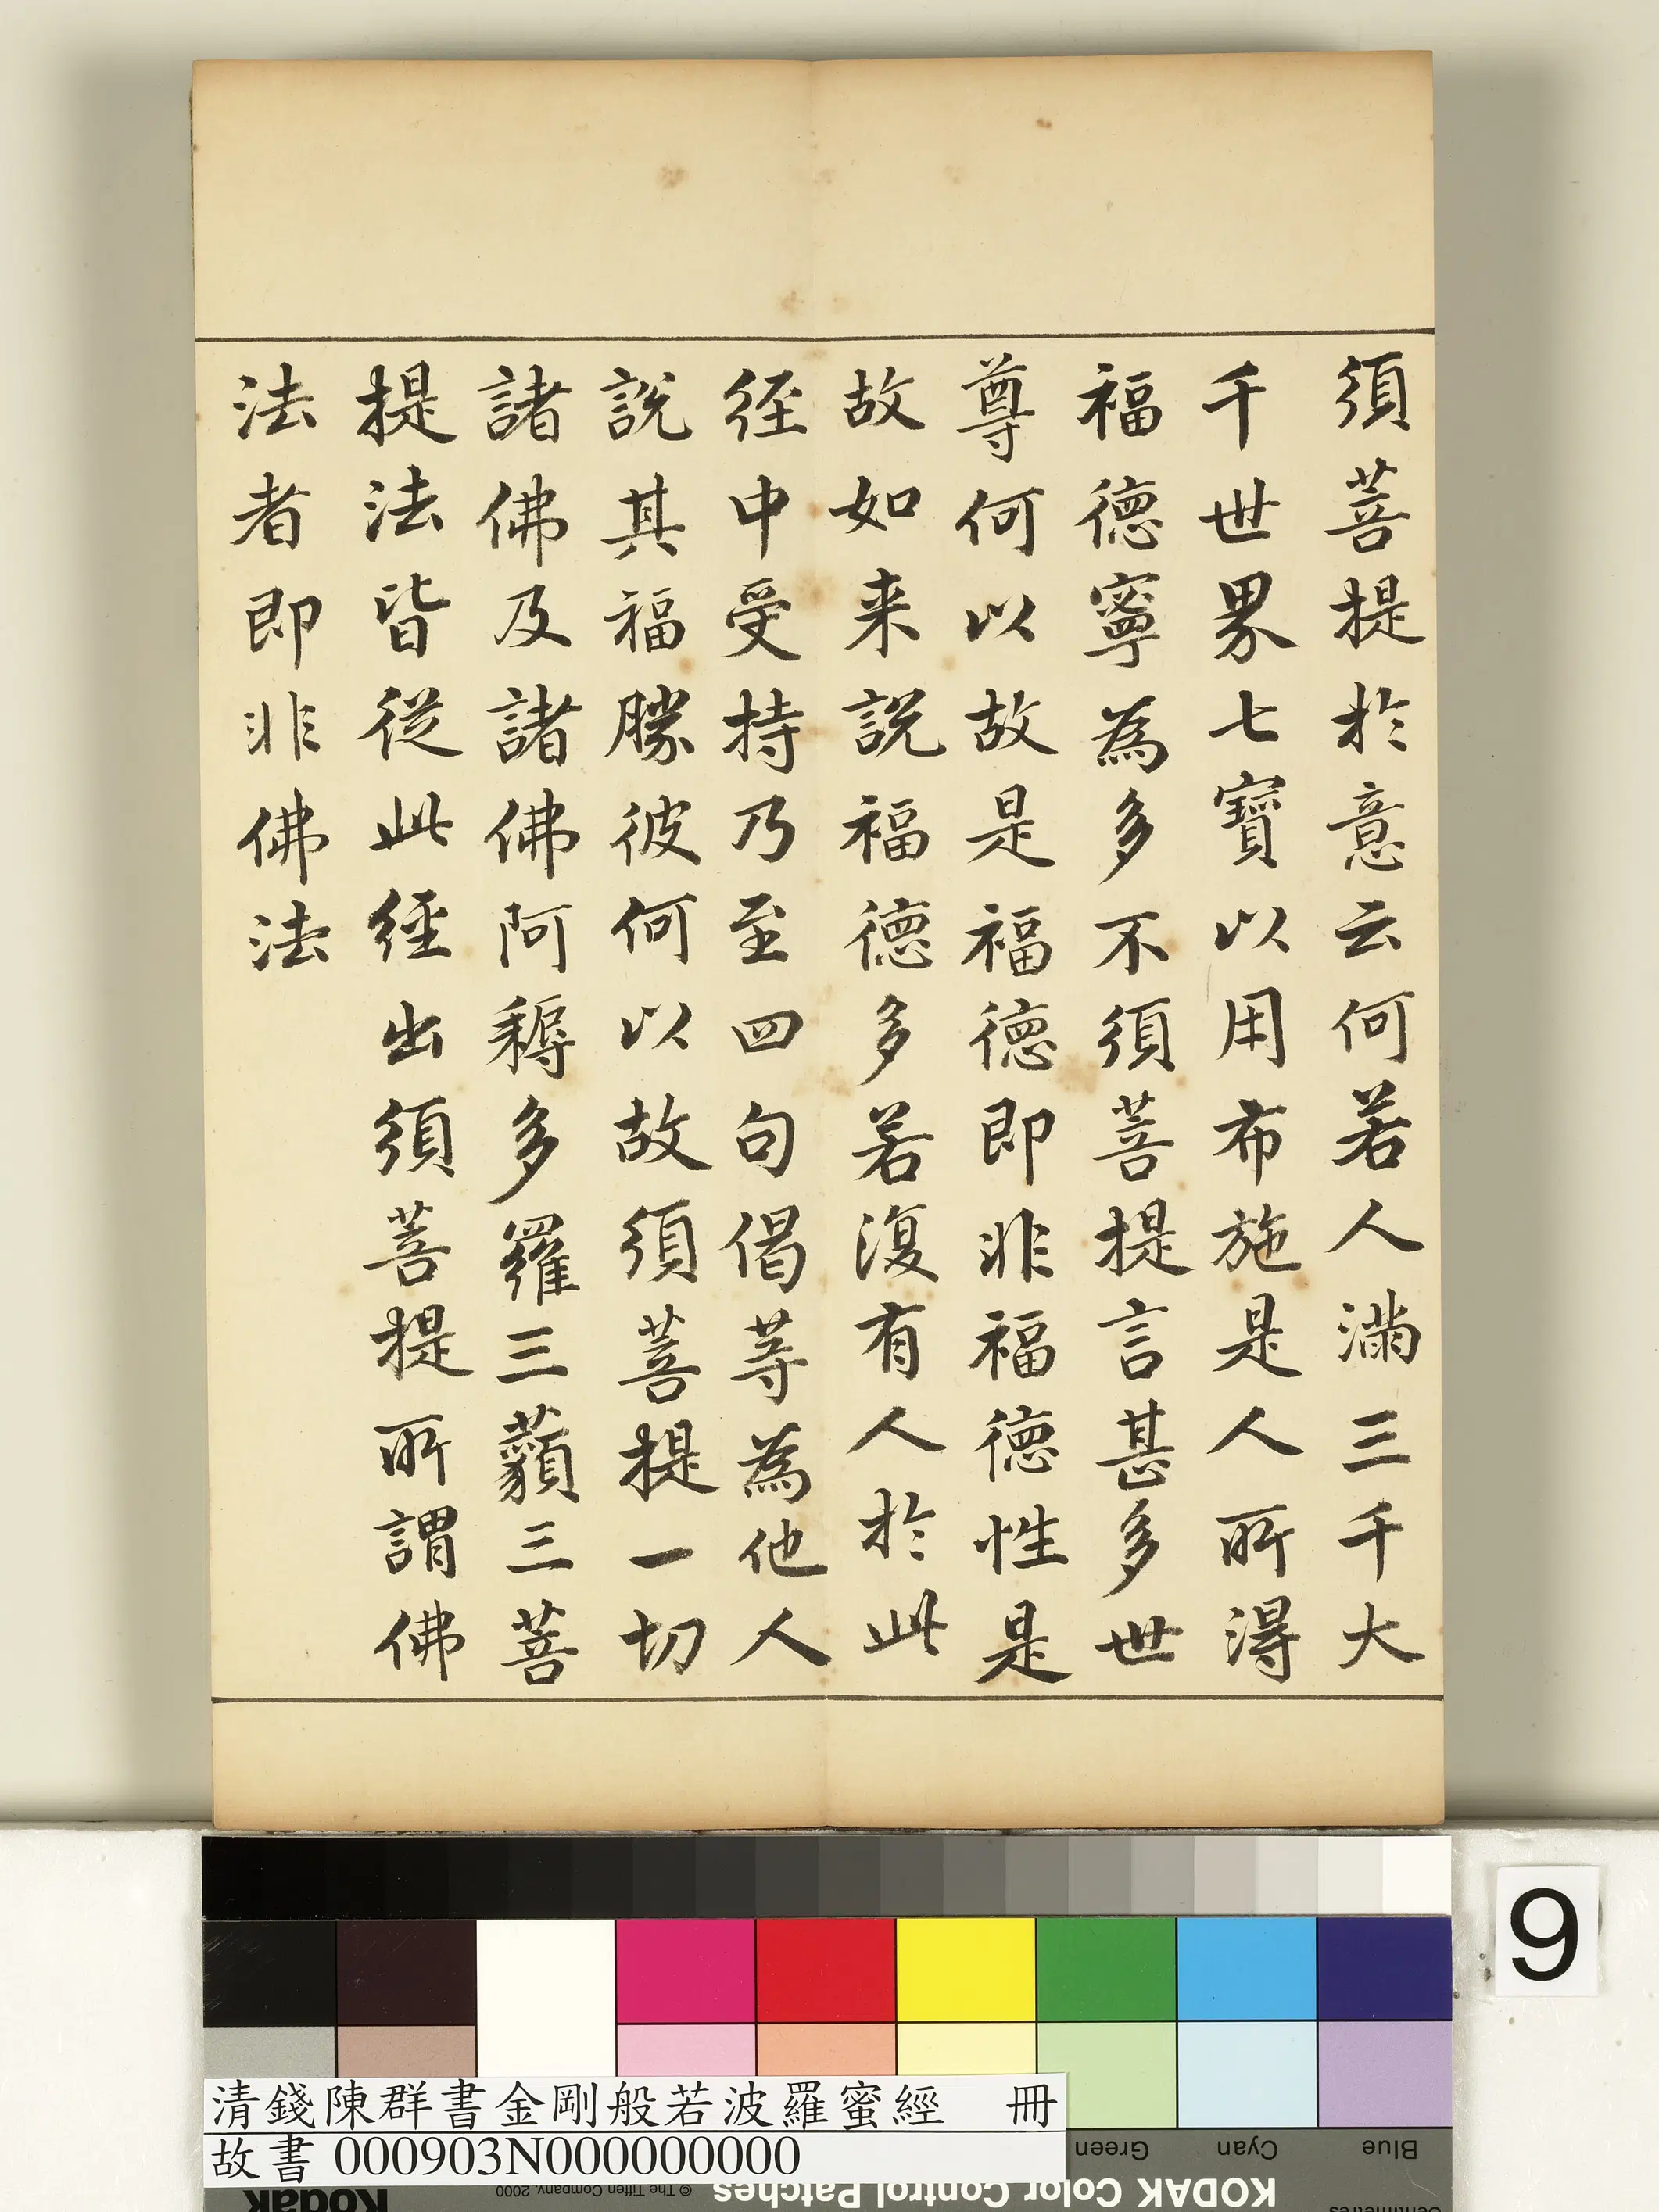 須菩提於意云何若人滿三千大
千世界七寶以用布施是人所得
福德寧為多不須菩提言甚多世
尊何以故是福德即非福德性是
故如来說福德多若復有人於此
経中受持乃至四句偈等為他人
說其福勝彼何以故須菩提一切
諸佛及諸佛阿耨多羅三藐三菩
提法皆從此經出須菩提所謂佛
法者即非佛法
9
清錢陳群書金剛般若波羅蜜經 冊
故書 000903N000000000
Green
Cyan
Blue
Kodak
© The Tiffen Company, 2000
KODAK Color Control Patches
Centimetres